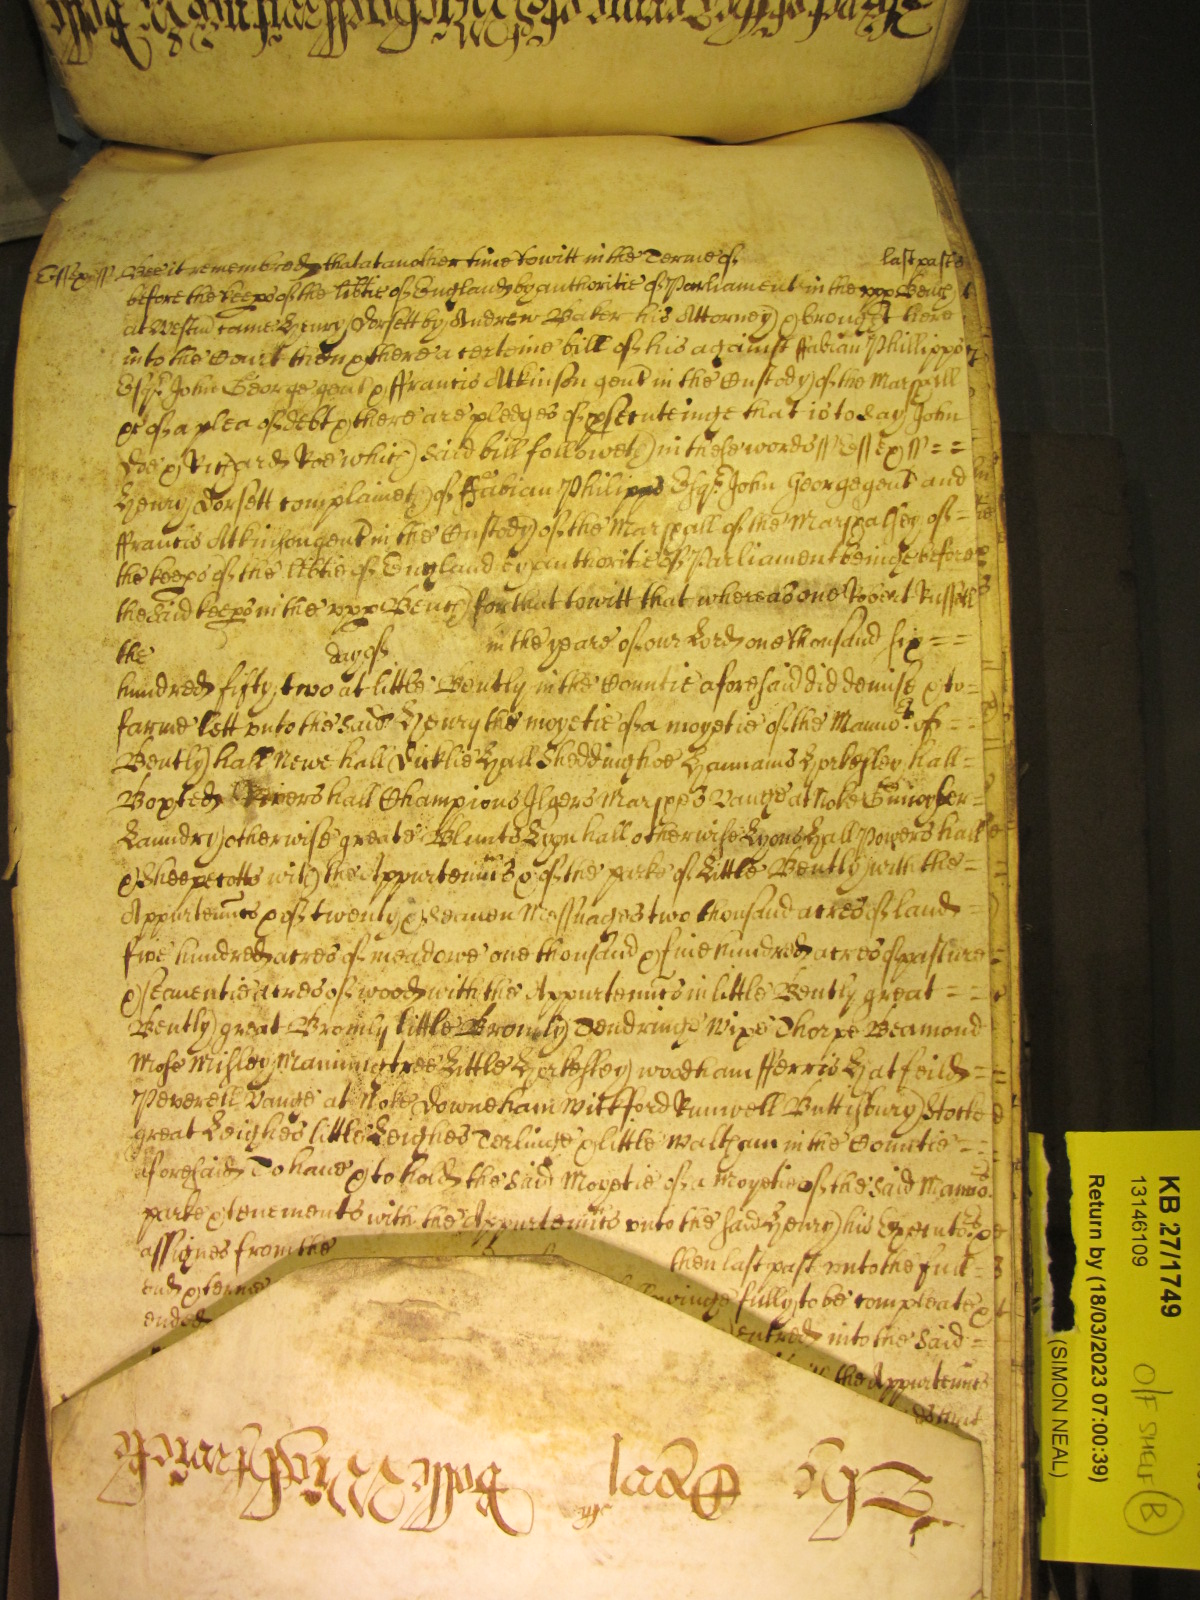 Essex ss Bee it remembred that at another time to witt in the Terme of last past
before the keeps of the libtie of England by authoritie of Parliament in the upp Bench
at Westm came Henry Dorsett by Andrew Baker his Attorney & brought here
into the Court then & there a certeine bill of his against ffabian Phillipps
Esqr John George gent & ffrancis Atkinson gent in the Custody of the Marshall
&c of a plea of debt & there are pledges of psecuteinge that is to say John
Doe & Richard Roe which said bill followeth in these words ss Essex ss = =
Henry Dorsett complaineth of ffabian Philipps Esqr John George gent and
ffrancis Atkinson gent in the Custody of the Marshall of the Marshalsey of =
the keeps of the libtie of England by authoritie of Parliament beinge before
the said keeps in the upp Bench for that to witt that whereas one Robert Russell
the day of in the yeare of our Lord one thousand six = =
hundred fifty two at little Bently in the Countie aforesaid did demise & to =
farme lett unto the said Henry the moyetie of a moyetie of the Mannors of = =
Bently hall Newe hall Dicklie Hall Sheddinghoe Hannams Horkesley hall =
Boxted Rivers hall Champions Ilgers Marshes Vange at Noke =
Laundry otherwise greate Blunts Lyon hall otherwise Lyons Hall Powers hall
& Sheepecotts with the Appurtennts & of the parke of Little Bently with the =
Appurtennts & of twenty & seaven Messuages two thousand acres of land =
five hundred acres of meadowe one thousand & five hundred acres of pasture
& seaventie acres of wood with the Appurtennts in little Bently great = =
Bently great Bromly little Bromly Tendringe Wixe Thorpe Beamond
Mose Misley Manningtree Little Horkesley woodham fferris Hatfeild =
Peverell Vange at Noke Downeham Wickford Runwell Buttsbury Stocke
great Leighes little Leighes Terlinge & little Waltham in the Countie = =
aforesaid To have & to hold the said Moyetie of a Moyetie of the said Mannors
parke & tenements with the Appurtennts unto the said Henry his Executors &
assignes from the then last past unto the full =
end & terme winge fully to be compleate &
ended entred into the said =
the Appurtennts
KB 27/1749
13146109
Return by (18/03/2023 07:00:39)
(SIMON NEAL)
O/F SHELF B